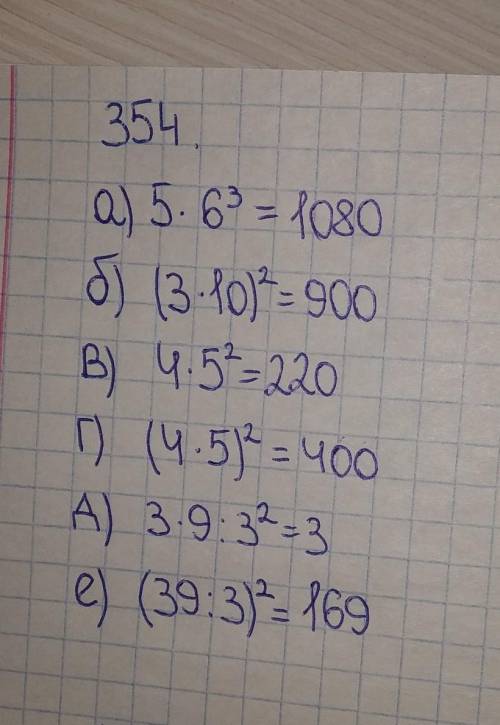 354.
а) 5·6³ = 1080
б) (3·10)² = 900
в) 4·5² = 220
г) (4·5)² = 400
д) 3·9:3² = 3
е) (39:3)² = 169